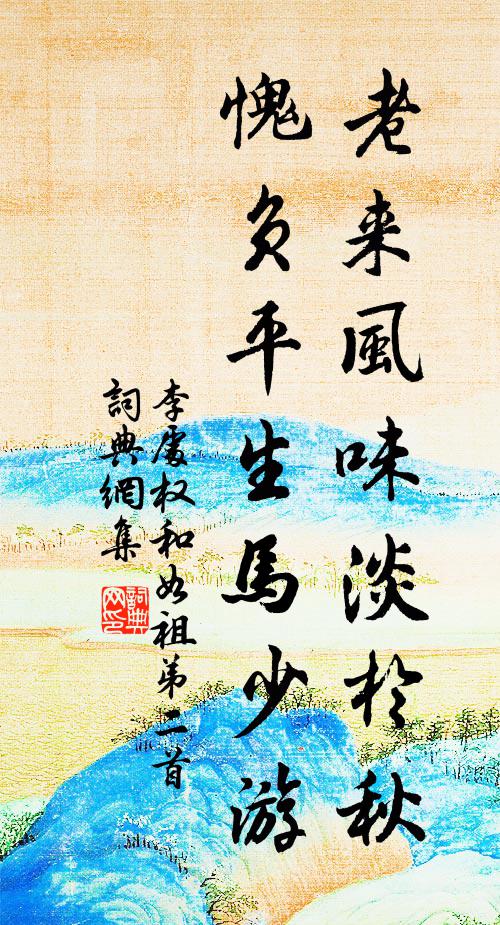 老来風味淡於秋
愧負平生馬少游
李處权和如祖弟二首
詞典網集
詞典網印